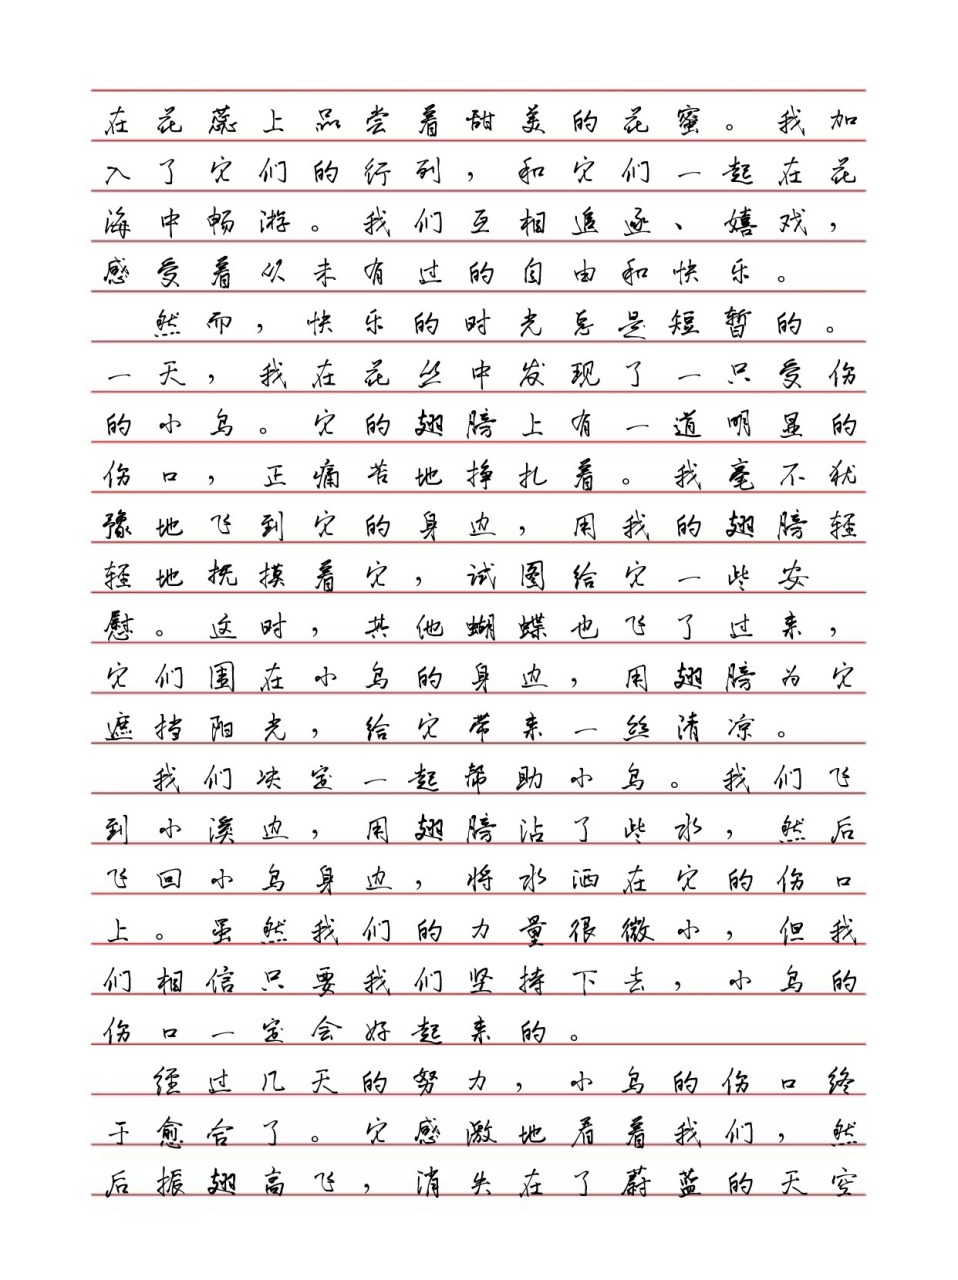 在花蕊上品尝着甜美的花蜜。我加
入了它们的行列，和它们一起在花
海中畅游。我们互相追逐、嬉戏，
感受着从未有过的自由和快乐。
然而，快乐的时光总是短暂的。
一天，我在花丛中发现了一只受伤
的小鸟。它的翅膀上有一道明显的
伤口，正痛苦地挣扎着。我毫不犹
豫地飞到它的身边，用我的翅膀轻
轻地抚摸着它，试图给它一些安
慰。这时，其他蝴蝶也飞了过来，
它们围在小鸟的身边，用翅膀为它
遮挡阳光，给它带来一丝清凉。
我们决定一起帮助小鸟。我们飞
到小溪边，用翅膀沾了些水，然后
飞回小鸟身边，将水洒在它的伤口
上。虽然我们的力量很微小，但我
们相信只要我们坚持下去，小鸟的
伤口一定会好起来的。
经过几天的努力，小鸟的伤口终
于愈合了。它感激地看着我们，然
后振翅高飞，消失在了蔚蓝的天空